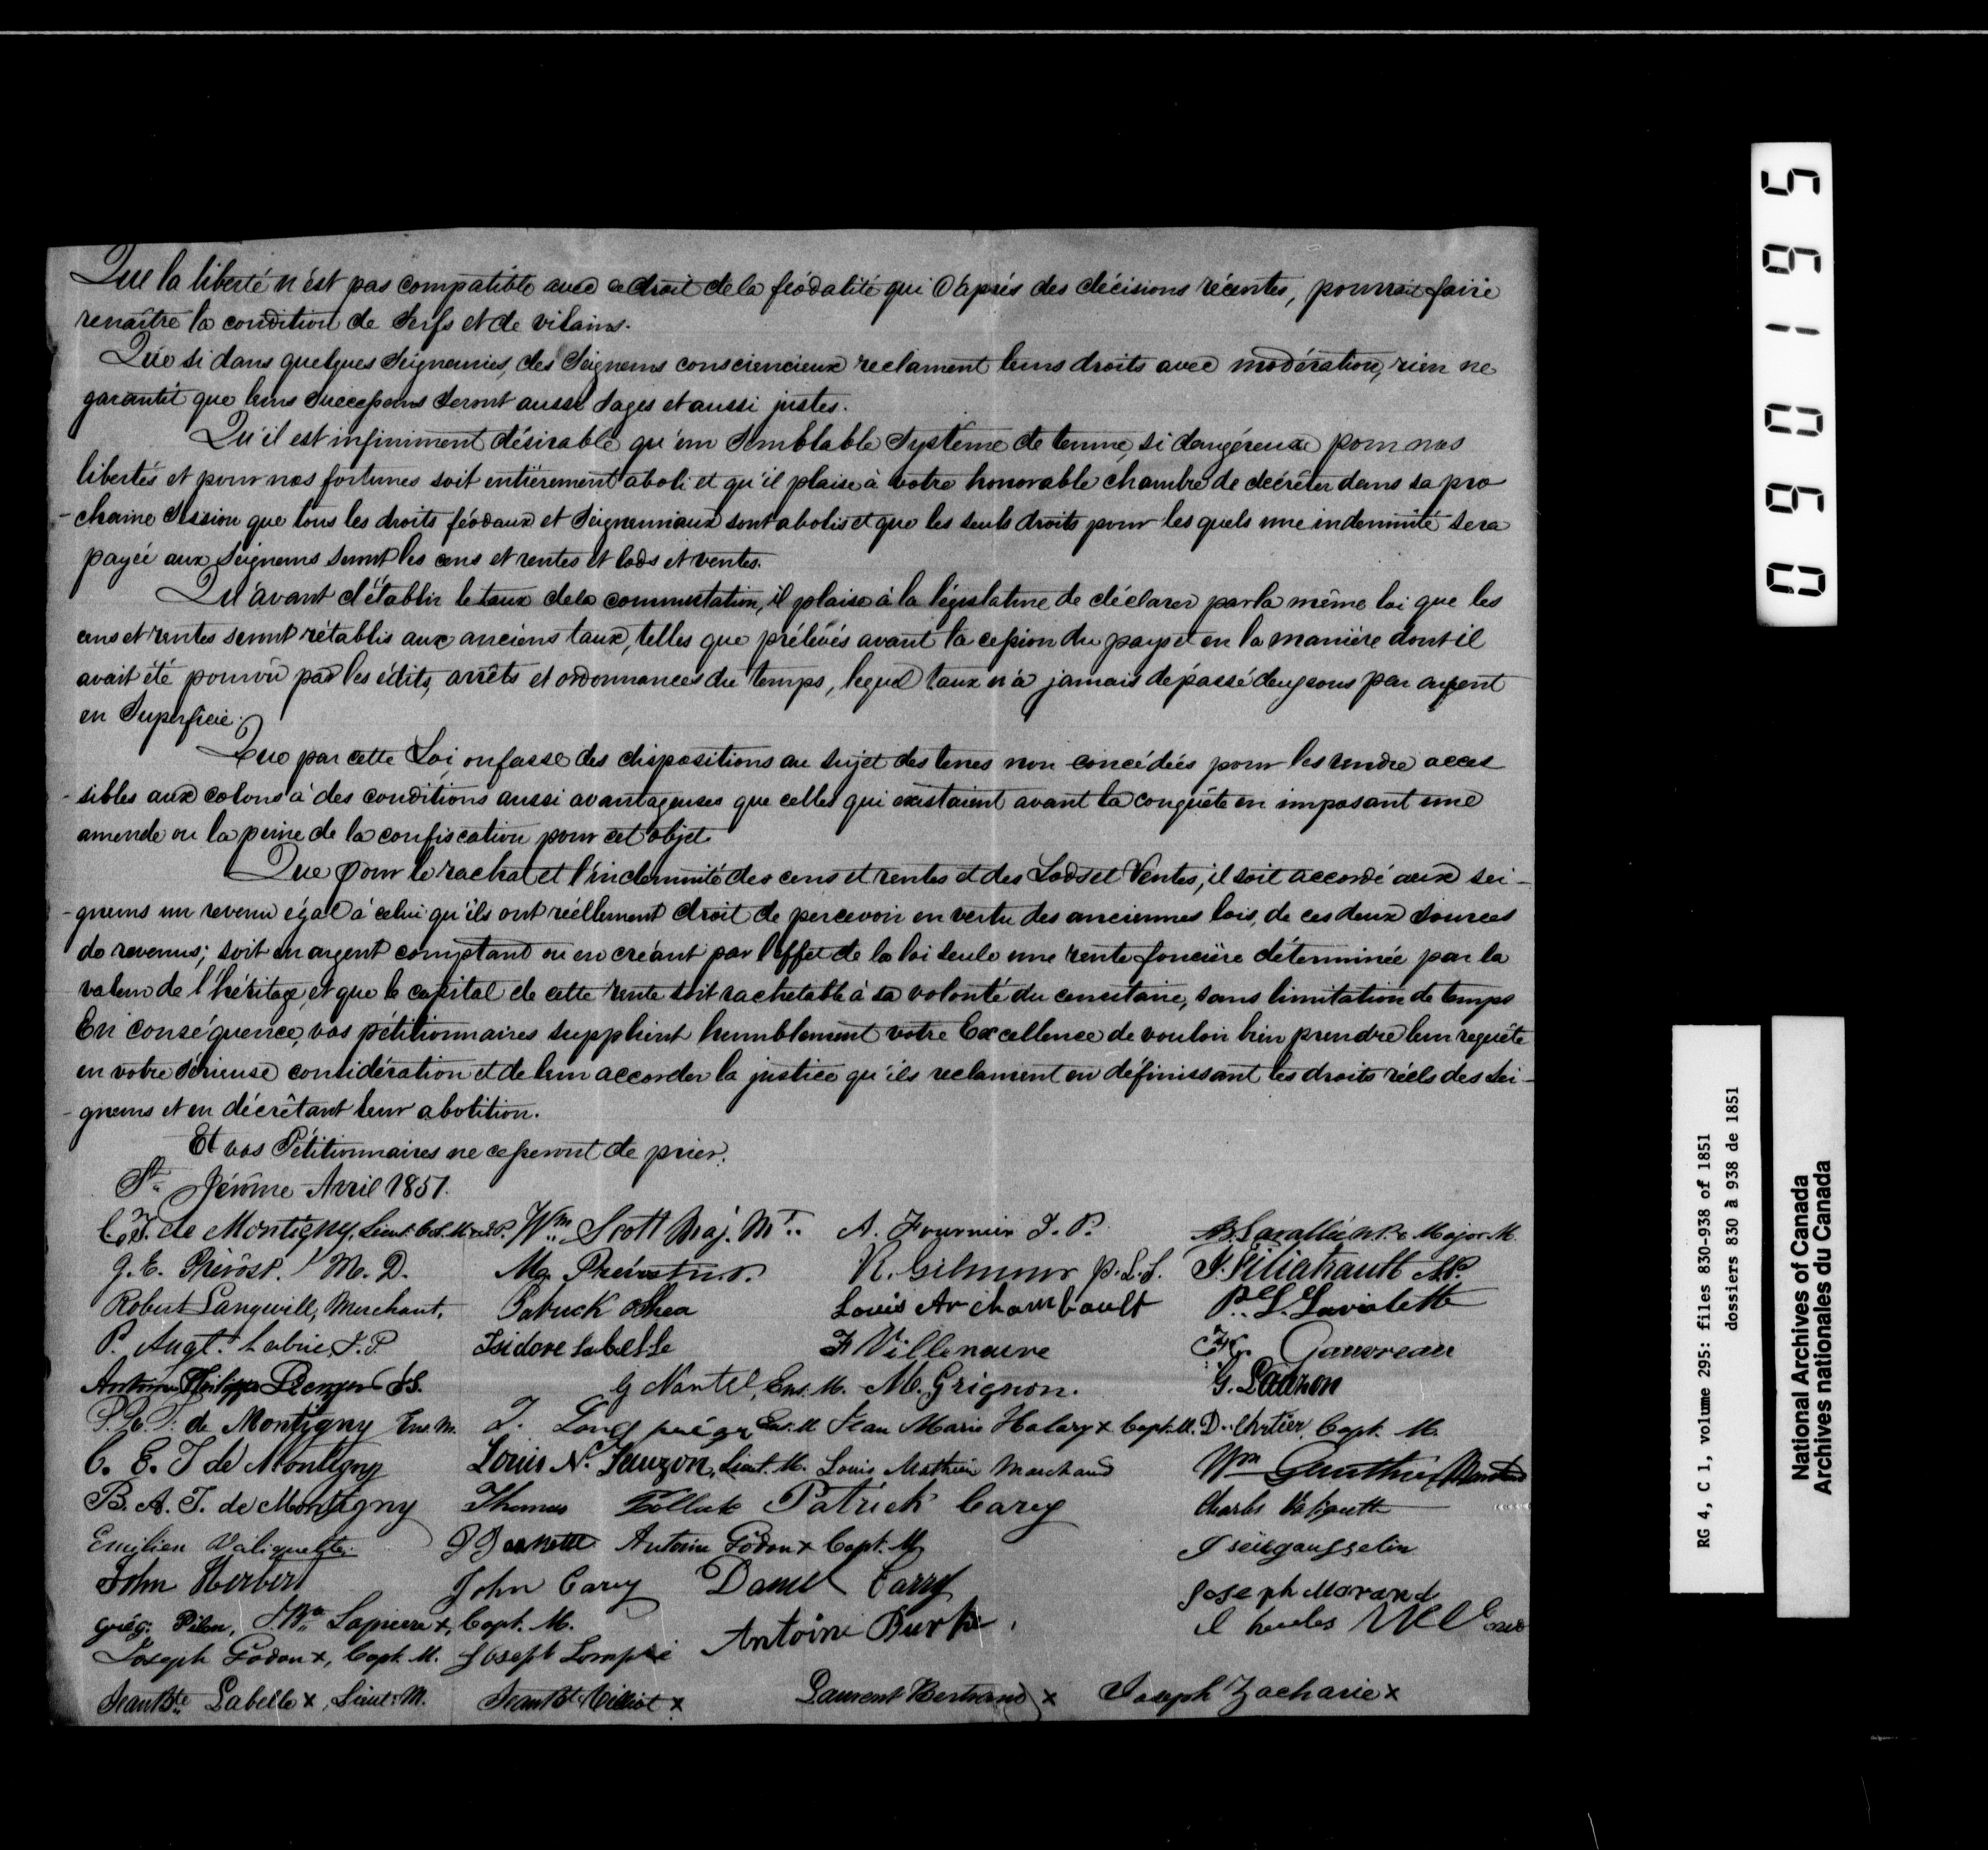 Que la liberté n'est pas compatible avec ce droit de la féodalité qui d'après des décisions récentes, pourrait faire
renaître la condition de Serfs et de vilains.
Que si dans quelques Seigneuries, des Seigneurs consciencieux reclament leurs droits avec modération, rien ne
garantit que leurs Successeurs seront aussi Sages et aussi justes.
Qu'il est infiniment désirable qu'un Semblable Système de tenure, si dangéreux pour nos
libertés et pour nos fortunes soit entièrement aboli et qu'il plaise à votre honorable chambre de decréter dans sa pro
-chaine Session que tous les droits féodaux et Seigneuriaux sont abolis et que les seuls droits pour les quels une indemnité sera
payée aux Seigneurs seront les cens et rentes et lods et ventes.
Qu'avant d'établir le taux de la commutation, il plaise à la législature de déclarer par la même loi que les
cens et rentes seront rétablis aux anciens taux, telles que prélevés avant la cession du pays et en la manière dont il
avait été pourvu par les édits, arrêts et ordonnances du temps, lequel taux n'a jamais dépassé deux sous par arpent
en Superficie.
Que par cette Loi on fasse des dispositions au sujet des terres non concédées pour les rendre acces
-sibles aux colons à des conditions aussi avantageuses que celles qui existaient avant la conquête en imposant une
amende ou la peine de la confiscation pour cet objet.
Que pour le rachat et l'indemnité des cens et rentes et des Lods et Ventes, il soit accordé aux sei-
-gneurs un revenu égal à celui qu'ils ont réellement droit de percevoir en vertu des anciennes lois, de ces deux sources
de revenus; soit en argent comptant ou en créant par l'effet de la loi seule une rente foncière déterminée par la
valeur de l'héritage, et que le capital de cette rente soit rachetable à sa volonté du censitaire, sans limitation de temps
En conséquence, vos pétitionnaires supplient humblement votre Excellence de vouloir bien prendre leur requête
en votre Sérieuse considération et de leur accorder la justice qu'ils reclament en définissant les droits réels des Sei-
-gneurs et en décrétant leur abolition.
Et vos Pétitionnaires ne cesseront de prier.
St. Jérôme Avril 1851.
de Montigny, Lieut. Wm. Scott Maj. M. A. Fournier J. P. Major M.
G. E. Prévost. M. D. R. Gilmour P. L. S. J. Filiatrault
Robert Langwill, Merchant, Patrick Shea Louis Archambault P. L. Laviolette
P. Augt. Labrie, J. P. Isidore Labelle F Villeneuve Gauvreau
Antoine Philippe G Nantel, Ens. M. M. Grignon. G. Lauzon
de Montigny Ens. M. Jean Marie x Capt. M. D. Capt. M.
C. E. T de Montigny Louis N. Lauzon, Lieut. M. Louis Mathieu Marchand Wm Gauthier
B. A. T. de Montigny Thomas Patrick Carey Charles
Emilien Valiquette Antoine Godon x Capt. M.
John Herbert John Carey Daniel Carry Joseph Morand
Grég. Pilon, J. Bte. Lapierre x, Capt. M. Antoine Charles
Joseph Godon x, Capt. M. Joseph
Jean Bte. Labelle x, Lieut. M. Jean Bt. x Laurent Bertrand x Joseph Zacharie x
096195
RG 4, C 1, volume 295: files 830-938 of 1851
dossiers 830 à 938 de 1851
National Archives of Canada
Archives nationales du Canada